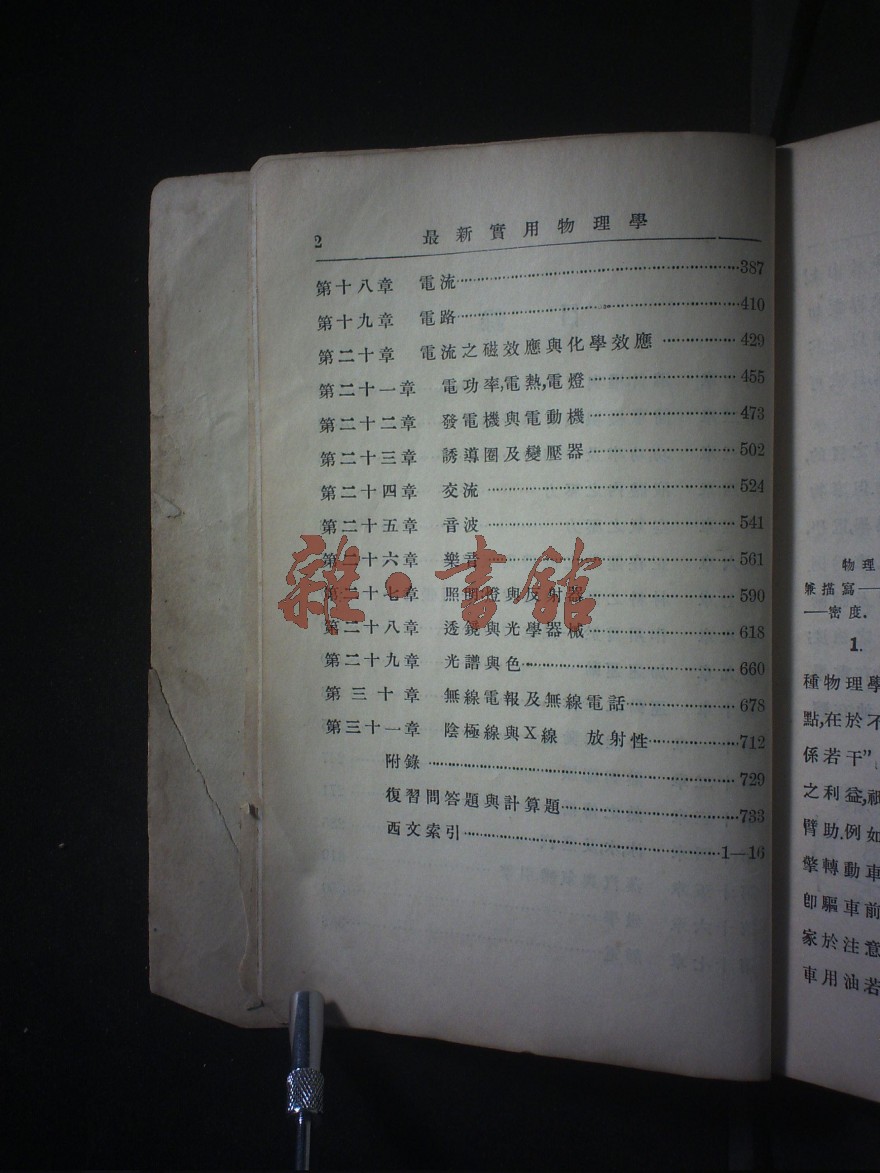 2 最新實用物理學
第十八章 電流……387
第十九章 電路……410
第二十章 電流之磁效應與化學效應……429
第二十一章 電功率,電熱,電燈……455
第二十二章 發電機與電動機……473
第二十三章 誘導圈及變壓器……502
第二十四章 交流……524
第二十五章 音波……541
第二十六章 樂音……561
第二十七章 照明燈與反射器……590
第二十八章 透鏡與光學器械……618
第二十九章 光譜與色……660
第三十章 無線電報及無線電話……678
第三十一章 陰極線與X線 放射性……712
附錄……729
復習問答題與計算題……733
西文索引……1—16
雜·書館
物理
兼描寫—
—密度.
1.
種物理學
點,在於不
係若干”
之利益,祇
臂助.例如
擎轉動車
卽驅車前
家於注意
車用油若